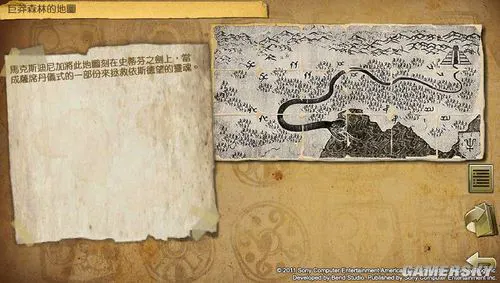 巨莽森林的地圖
馬克斯迪尼加將此地圖刻在史蒂芬之劍上，當
成薩席丹儀式的一部份來拯救依斯德望的靈魂。
© 2011 Sony Computer Entertainment America
Developed by Bend Studio. Published by Sony Computer Entertainment Inc.
GAMERSKY